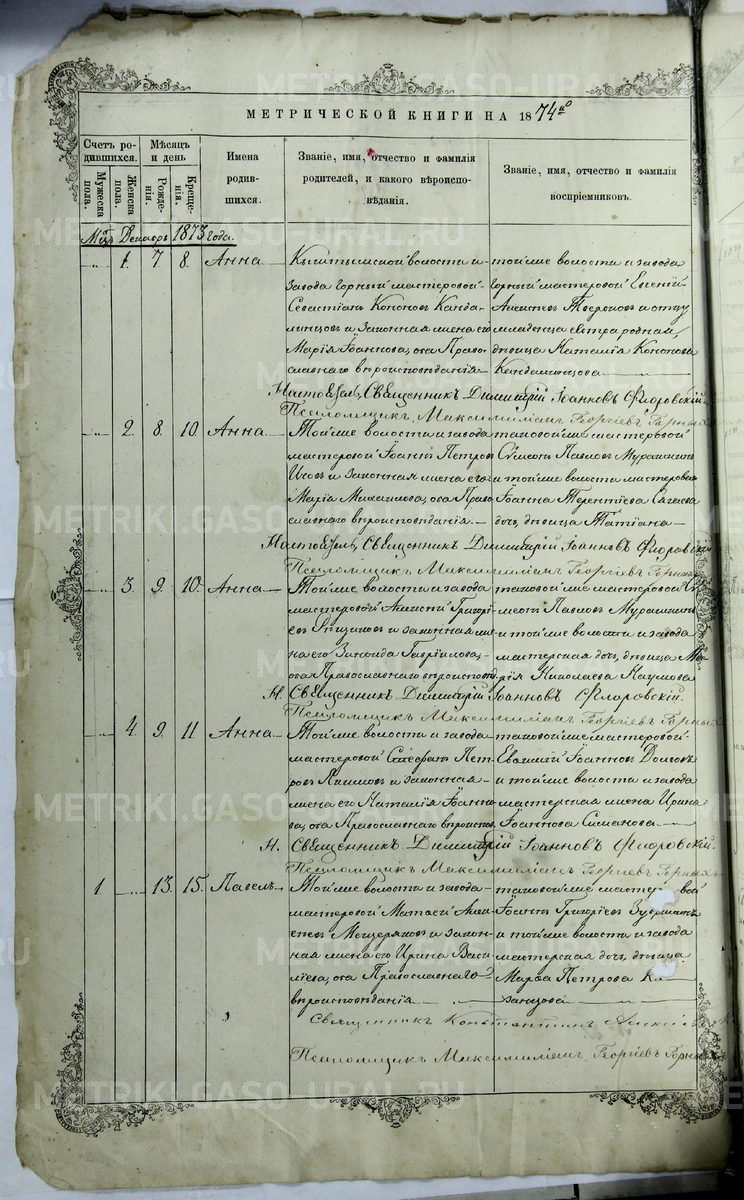 МЕТРИЧЕСКОЙ КНИГИ НА 1874й
Счетъ ро-
дившихся.
Мужеска
пола.
Женска
пола.
Мѣсяцъ
и день
Рожде-
нія.
Креще-
нія.
Имена
родив-
шихся.
Званіе, имя, отчество и фамилія
родителей, и какого вѣроиспо-
вѣданія.
Званіе, имя, отчество и фамилія
воспріемниковъ.
Мцъ Декабрь 1873 года.
1. 7. 8. Анна
Кыштымской волости и
завода горный мастеровой
Севастіанъ Кононовъ Канда-
линцовъ и законная жена его
Марія Іоаннова, оба Право-
славнаго вѣроисповѣданія
той же волости и завода
горный мастеровой Евгеній
Алексѣевъ и отцу
младенца сестра родная,
дѣвица Наталія Кононова
Кандалинцова
Настоятель, Священникъ Димитрій Іоанновъ Флоровскій.
Псаломщикъ Максимиліанъ Георгіевъ Горныхъ
2. 8. 10. Анна
Той же волости и завода
мастеровой Іоаннъ Петровъ
и законная жена его
Марія Михаилова, оба Право-
славнаго вѣроисповѣданія.
таковой же мастеровой
Сѵмеонъ Павловъ Мурашкинъ
и той же волости мастероваго
Іоанна Терентіева
дочь, дѣвица Татіана
Настоятель, Священникъ Димитрій Іоанновъ Флоровскій
Псаломщикъ Максимиліанъ Георгіевъ Горныхъ
3. 9. 10. Анна
Той же волости и завода
мастеровой Алексѣй Григорі-
евъ и законная же-
на его Зинаида Гавріилова,
оба Православнаго вѣроисповѣд
таковой же мастеровой Сѵ-
меонъ Павловъ Мурашкинъ
и той же волости и завода
мастерская дочь, дѣвица Ма-
рія Николаева Наумова
Н. Священникъ Димитрій Іоанновъ Флоровскій.
Псаломщикъ Максимиліанъ Георгіевъ Горныхъ
4. 9. 11. Анна
Той же волости и завода
мастеровой Стефанъ Пет-
ровъ и законная
жена его Наталія Іоанно-
ва, оба Православнаго вѣроиспов.
таковой же мастеровой
Евѳимій Іоанновъ
и той же волости и завода
мастерская жена Ирина
Іоаннова Симанова
Н. Священникъ Димитрій Іоанновъ Флоровскій.
Псаломщикъ Максимиліанъ Георгіевъ Горныхъ
1 13. 15. Павелъ
Той же волости и завода
мастеровой Матвей Алек-
сѣевъ Мещеряковъ и закон-
ная жена его Ирина Васи-
ліева, оба Православнаго
вѣроисповѣданія
таковой же мастеровой
Іоаннъ Григоріевъ
и той же волости и завода
мастерская дочь, дѣвица
Марѳа Петрова
Священникъ Константинъ
Псаломщикъ Максимиліанъ Георгіевъ Горныхъ
METRIKI.GASO-URAL.RU